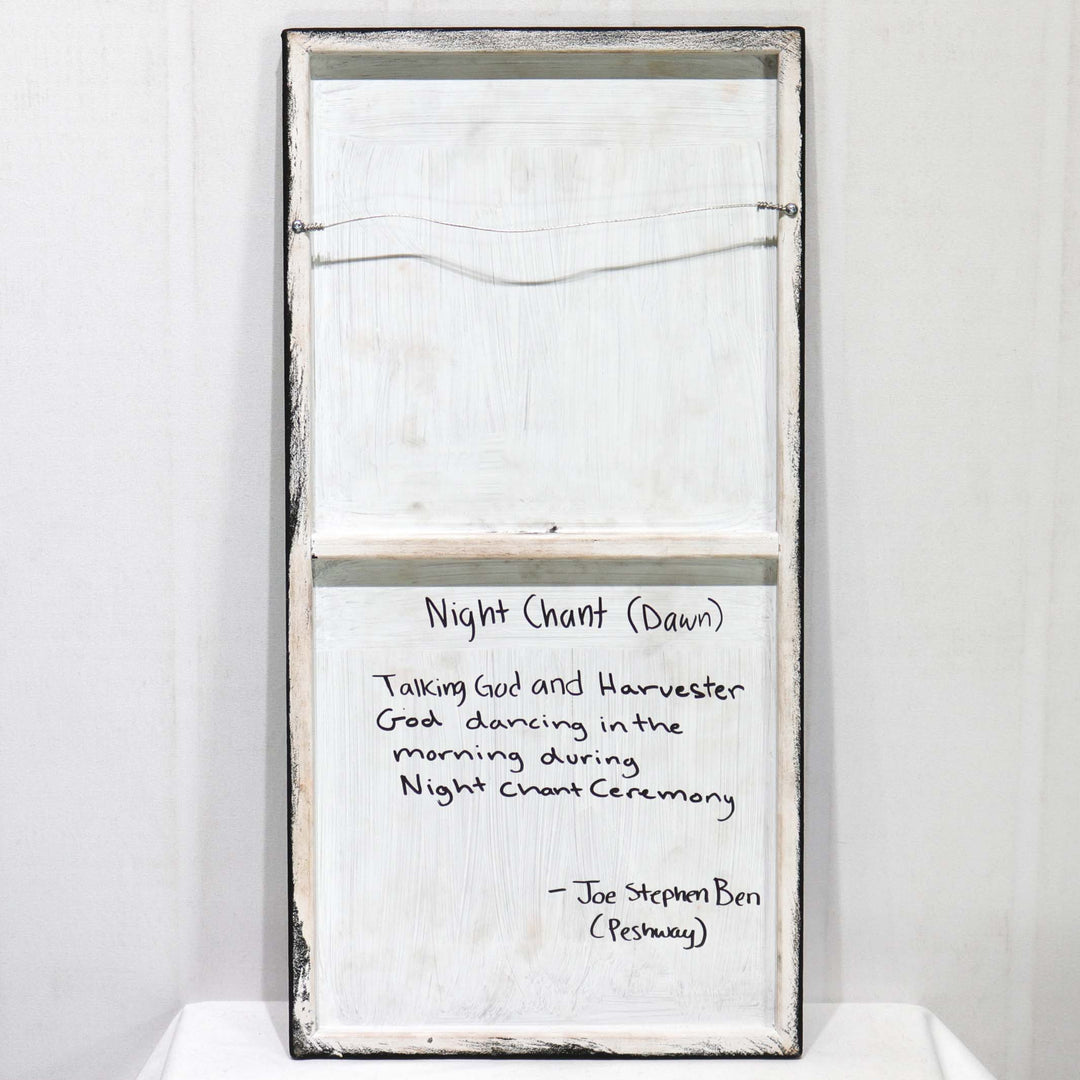 Night Chant (Dawn)
Talking God and Harvester
God dancing in the
morning during
Night Chant Ceremony
- Joe Stephen Ben
(Peshway)